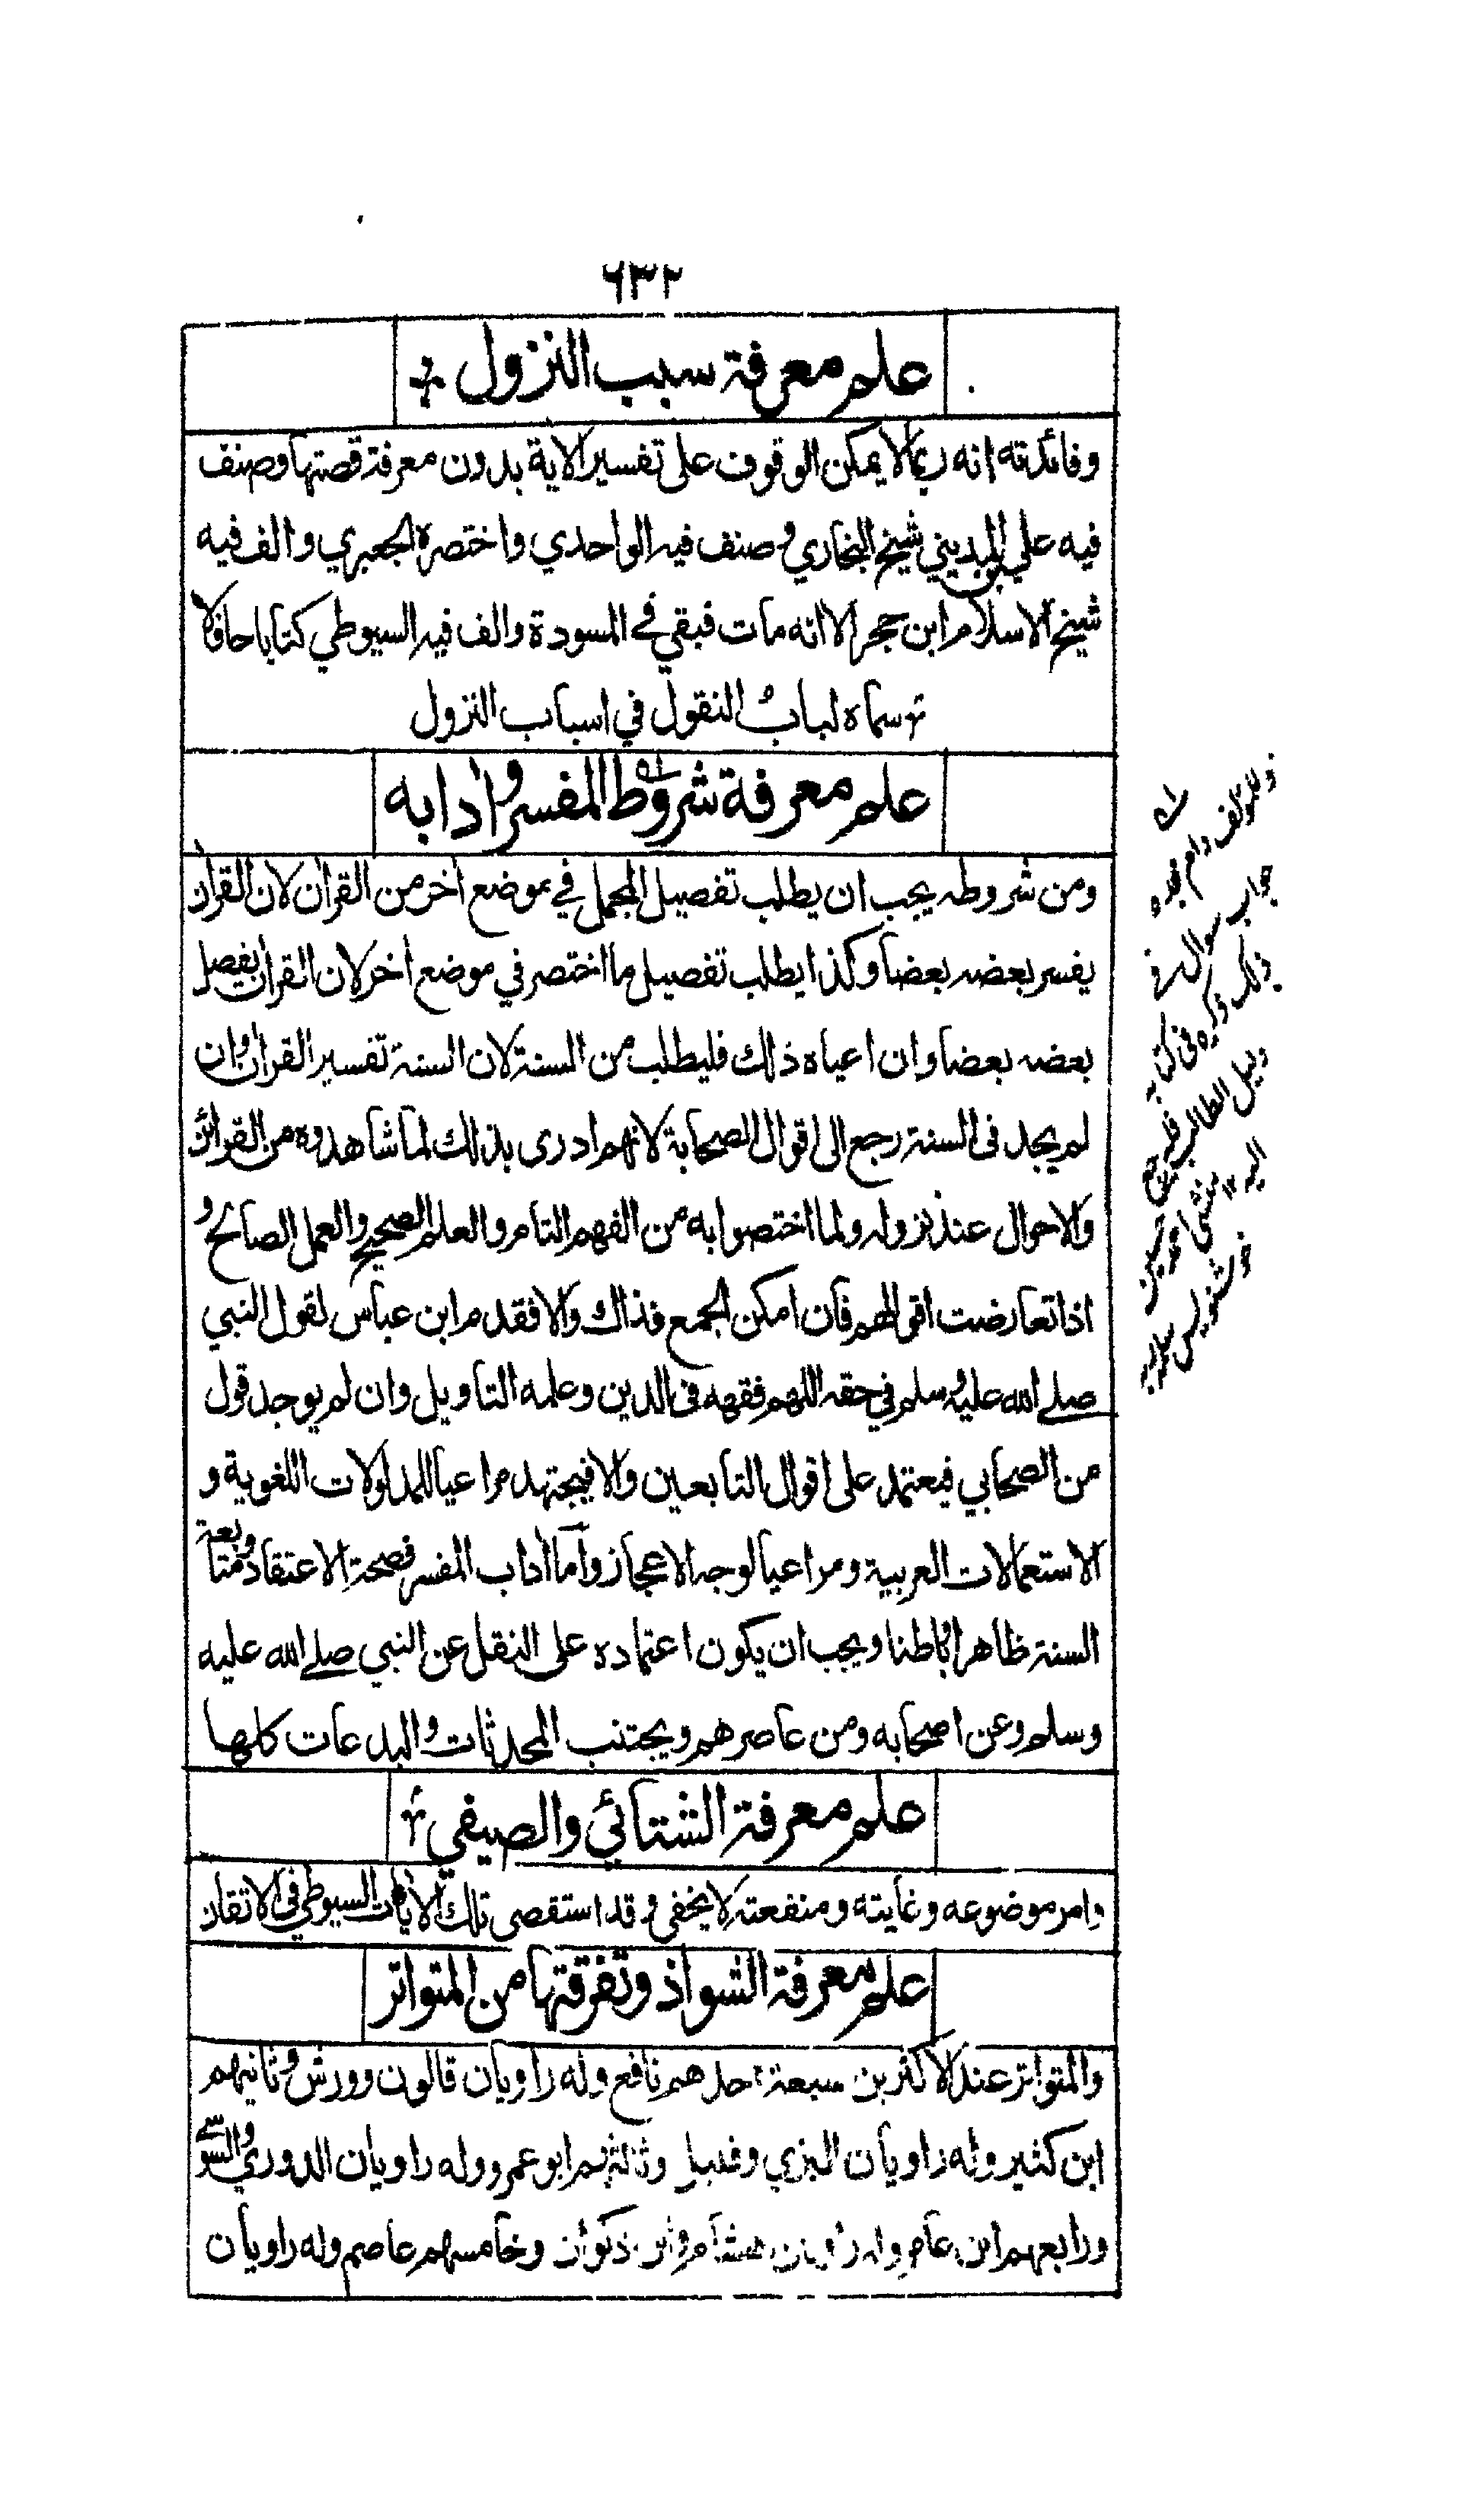 ٦٣٢
علم معرفة سبب النزول
وفائدته انه ربما لا يمكن الوقوف على تفسير الاية بدون معرفة قصتها وصنف
فيه علي بن المديني شيخ البخاري وصنف فيه الواحدي واختصره الجعبري والف فيه
شيخ الاسلام ابن حجر الا انه مات فبقي في المسودة والف فيه السيوطي كتابا حافلا
سماه لباب النقول في اسباب النزول
علم معرفة شروط المفسر وادابه
ومن شروطه يجب ان يطلب تفصيل المجمل في موضع اخر من القران لان القران
يفسر بعضه بعضا وكذا يطلب تفصيل ما اختصر في موضع اخر لان القران يفصل
بعضه بعضا وان اعياه ذلك فليطلب من السنة لان السنة تفسير القران وان
لم يجد فى السنة رجع الى اقوال الصحابة لانهم ادرى بذلك لما شاهدوه من القرائن
والاحوال عند نزوله ولما اختصوا به من الفهم التام والعلم الصحيح والعمل الصالح و
اذا تعارضت اقوالهم فان امكن الجمع فذاك والا فقدم ابن عباس لقول النبي
صلے الله عليه وسلم في حقه اللهم فقهه فى الدين وعلمه التاويل وان لم يوجد قول
من الصحابي فيعتمد على اقوال التابعين والا فيجتهد مراعيا للمدلولات اللغوية و
الاستعمالات العربية ومراعيا لوجه الاعجاز وآما آداب المفسر فصحة الاعتقاد ومتابعة
السنة ظاهرا وباطنا ويجب ان يكون اعتماده على النقل عن النبي صلے الله عليه
وسلم وعن اصحابه ومن عاصرهم ويجتنب المحدثات والبدعات كلها
علم معرفة الشتائي والصيفي
وامر موضوعه وغايته ومنفعته لا يخفى وقد استقصى تلك الايات السيوطي في الاتقان
علم معرفة الشواذ وتفرقتها من المتواتر
والمتواتر عند الاكثرين سبعة احدهم نافع وله راويان قالون وورش وثانيهم
ابن كثير وله راويان البزي وقنبل وثالثهم ابو عمرو وله راويان الدوري والسوسے
ورابعهم ابن عامر وله راويان هشام وابن ذكوان وخامسهم عاصم وله راويان
وللمؤلف دام مجده
جواب سوال فى
ذلك ذكره فى كتابه
دليل الطالب فليرجع
اليه ١٢ منشى احمد حسين
خوشنويس